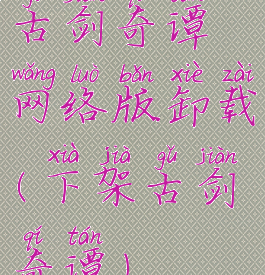 古剑奇谭
wǎng luò bǎn xiè zài
网络版卸载
xià jià gǔ jiàn
(下架古剑
qí tán
奇谭)